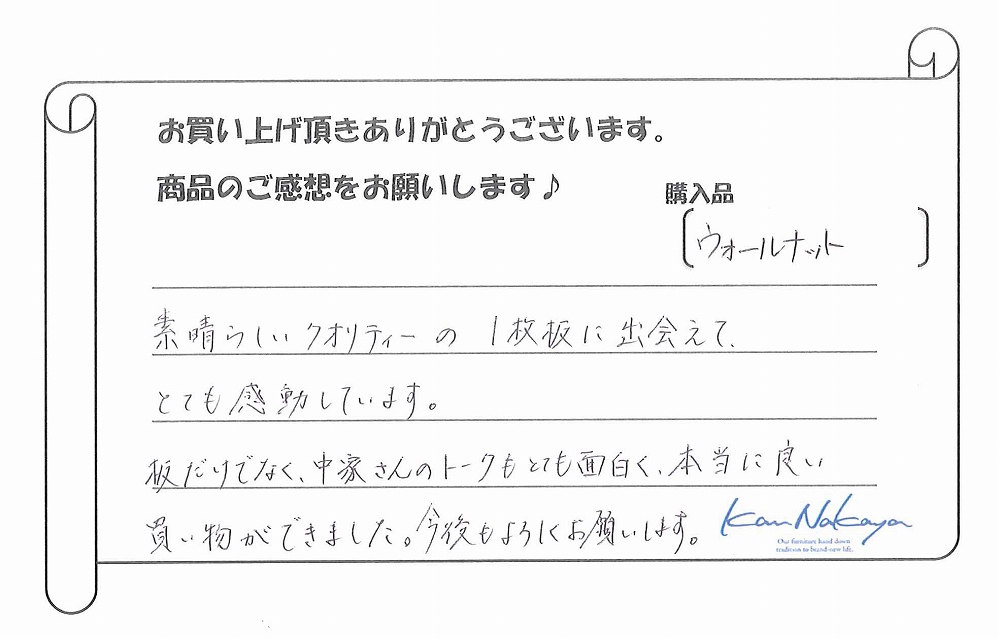 お買い上げ頂きありがとうございます。
商品のご感想をお願いします♪
購入品
ウォールナット
素晴らしいクオリティーの1枚板に出会えて、
とても感動しています。
板だけでなく、中家さんのトークもとても面白く、本当に良い
買い物ができました。今後もよろしくお願いします。
Kan Nakaya
Our furniture hand down
tradition to brand-new life.